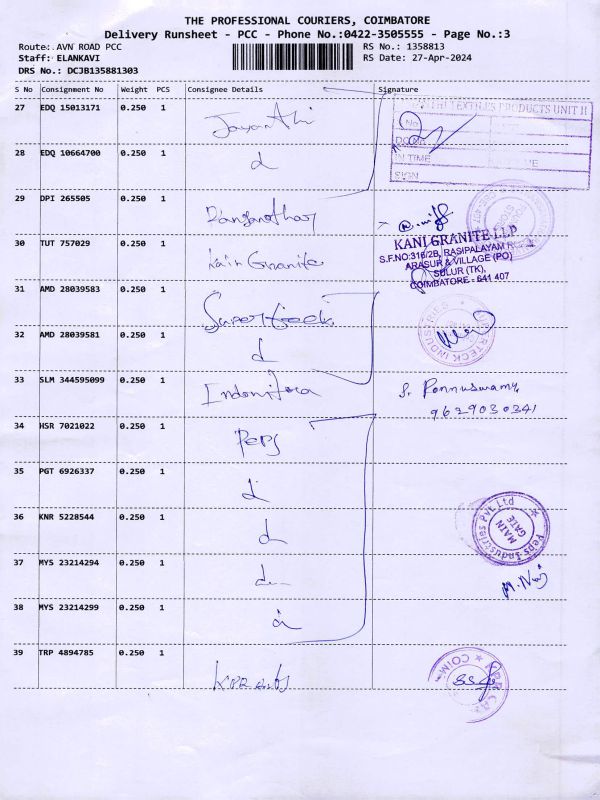 THE PROFESSIONAL COURIERS, COIMBATORE
Delivery Runsheet - PCC - Phone No.:0422-3505555 - Page No.:3
Route: AVN ROAD PCC
RS No.: 1358813
Staff: ELANKAVI
RS Date: 27-Apr-2024
DRS No.: DCJB135881303
S No Consignment No Weight PCS Consignee Details Signature
27 EDQ 15013171 0.250 1 Jayanthi
TEXTILES PRODUCTS UNIT II
No
IN TIME
SIGN
28 EDQ 10664700 0.250 1 d
29 DPI 265505 0.250 1
30 TUT 757029 0.250 1 Kain Granite
KANI GRANITE LLP
S.F.NO:316/2B, RASIPALAYAM
ARASUR & VILLAGE (PO)
SULUR (TK),
COIMBATORE - 641 407
31 AMD 28039583 0.250 1 Superteck
SUPERTECK INDUSTRIES
32 AMD 28039581 0.250 1 d
33 SLM 344595099 0.250 1 Ponnuswamy
9629030341
34 HSR 7021022 0.250 1 Peps
35 PGT 6926337 0.250 1 d
36 KNR 5228544 0.250 1 d
Peps Industries Pvt. Ltd
MAIN
GATE
37 MYS 23214294 0.250 1 d
38 MYS 23214299 0.250 1 d
39 TRP 4894785 0.250 1 KPR